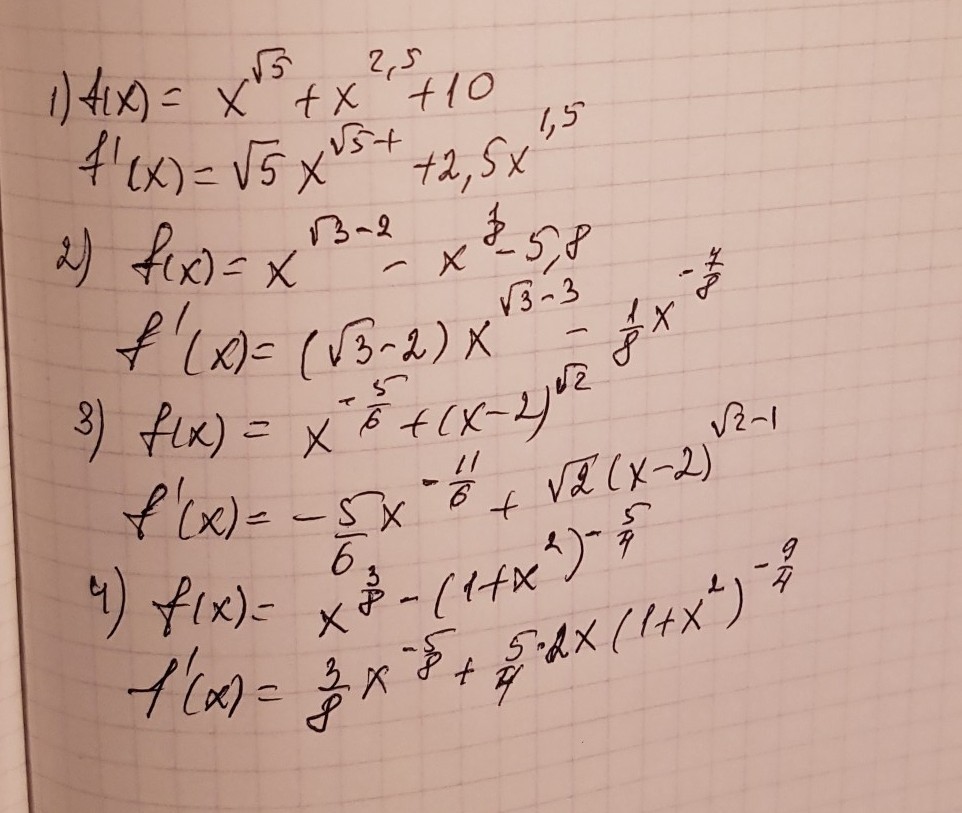 1) f(x) = x^{√5} + x^{2,5} + 10
f'(x) = √5 x^{√5-1} + 2,5x^{1,5}
2) f(x) = x^{√3-2} - x^{1/8} - 5,8
f'(x) = (√3-2) x^{√3-3} - 1/8 x^{-7/8}
3) f(x) = x^{-5/6} + (x-2)^{√2}
f'(x) = -5/6 x^{-11/6} + √2 (x-2)^{√2-1}
4) f(x) = x^{3/8} - (1+x^2)^{-5/4}
f'(x) = 3/8 x^{-5/8} + 5/4 · 2x (1+x^2)^{-9/4}